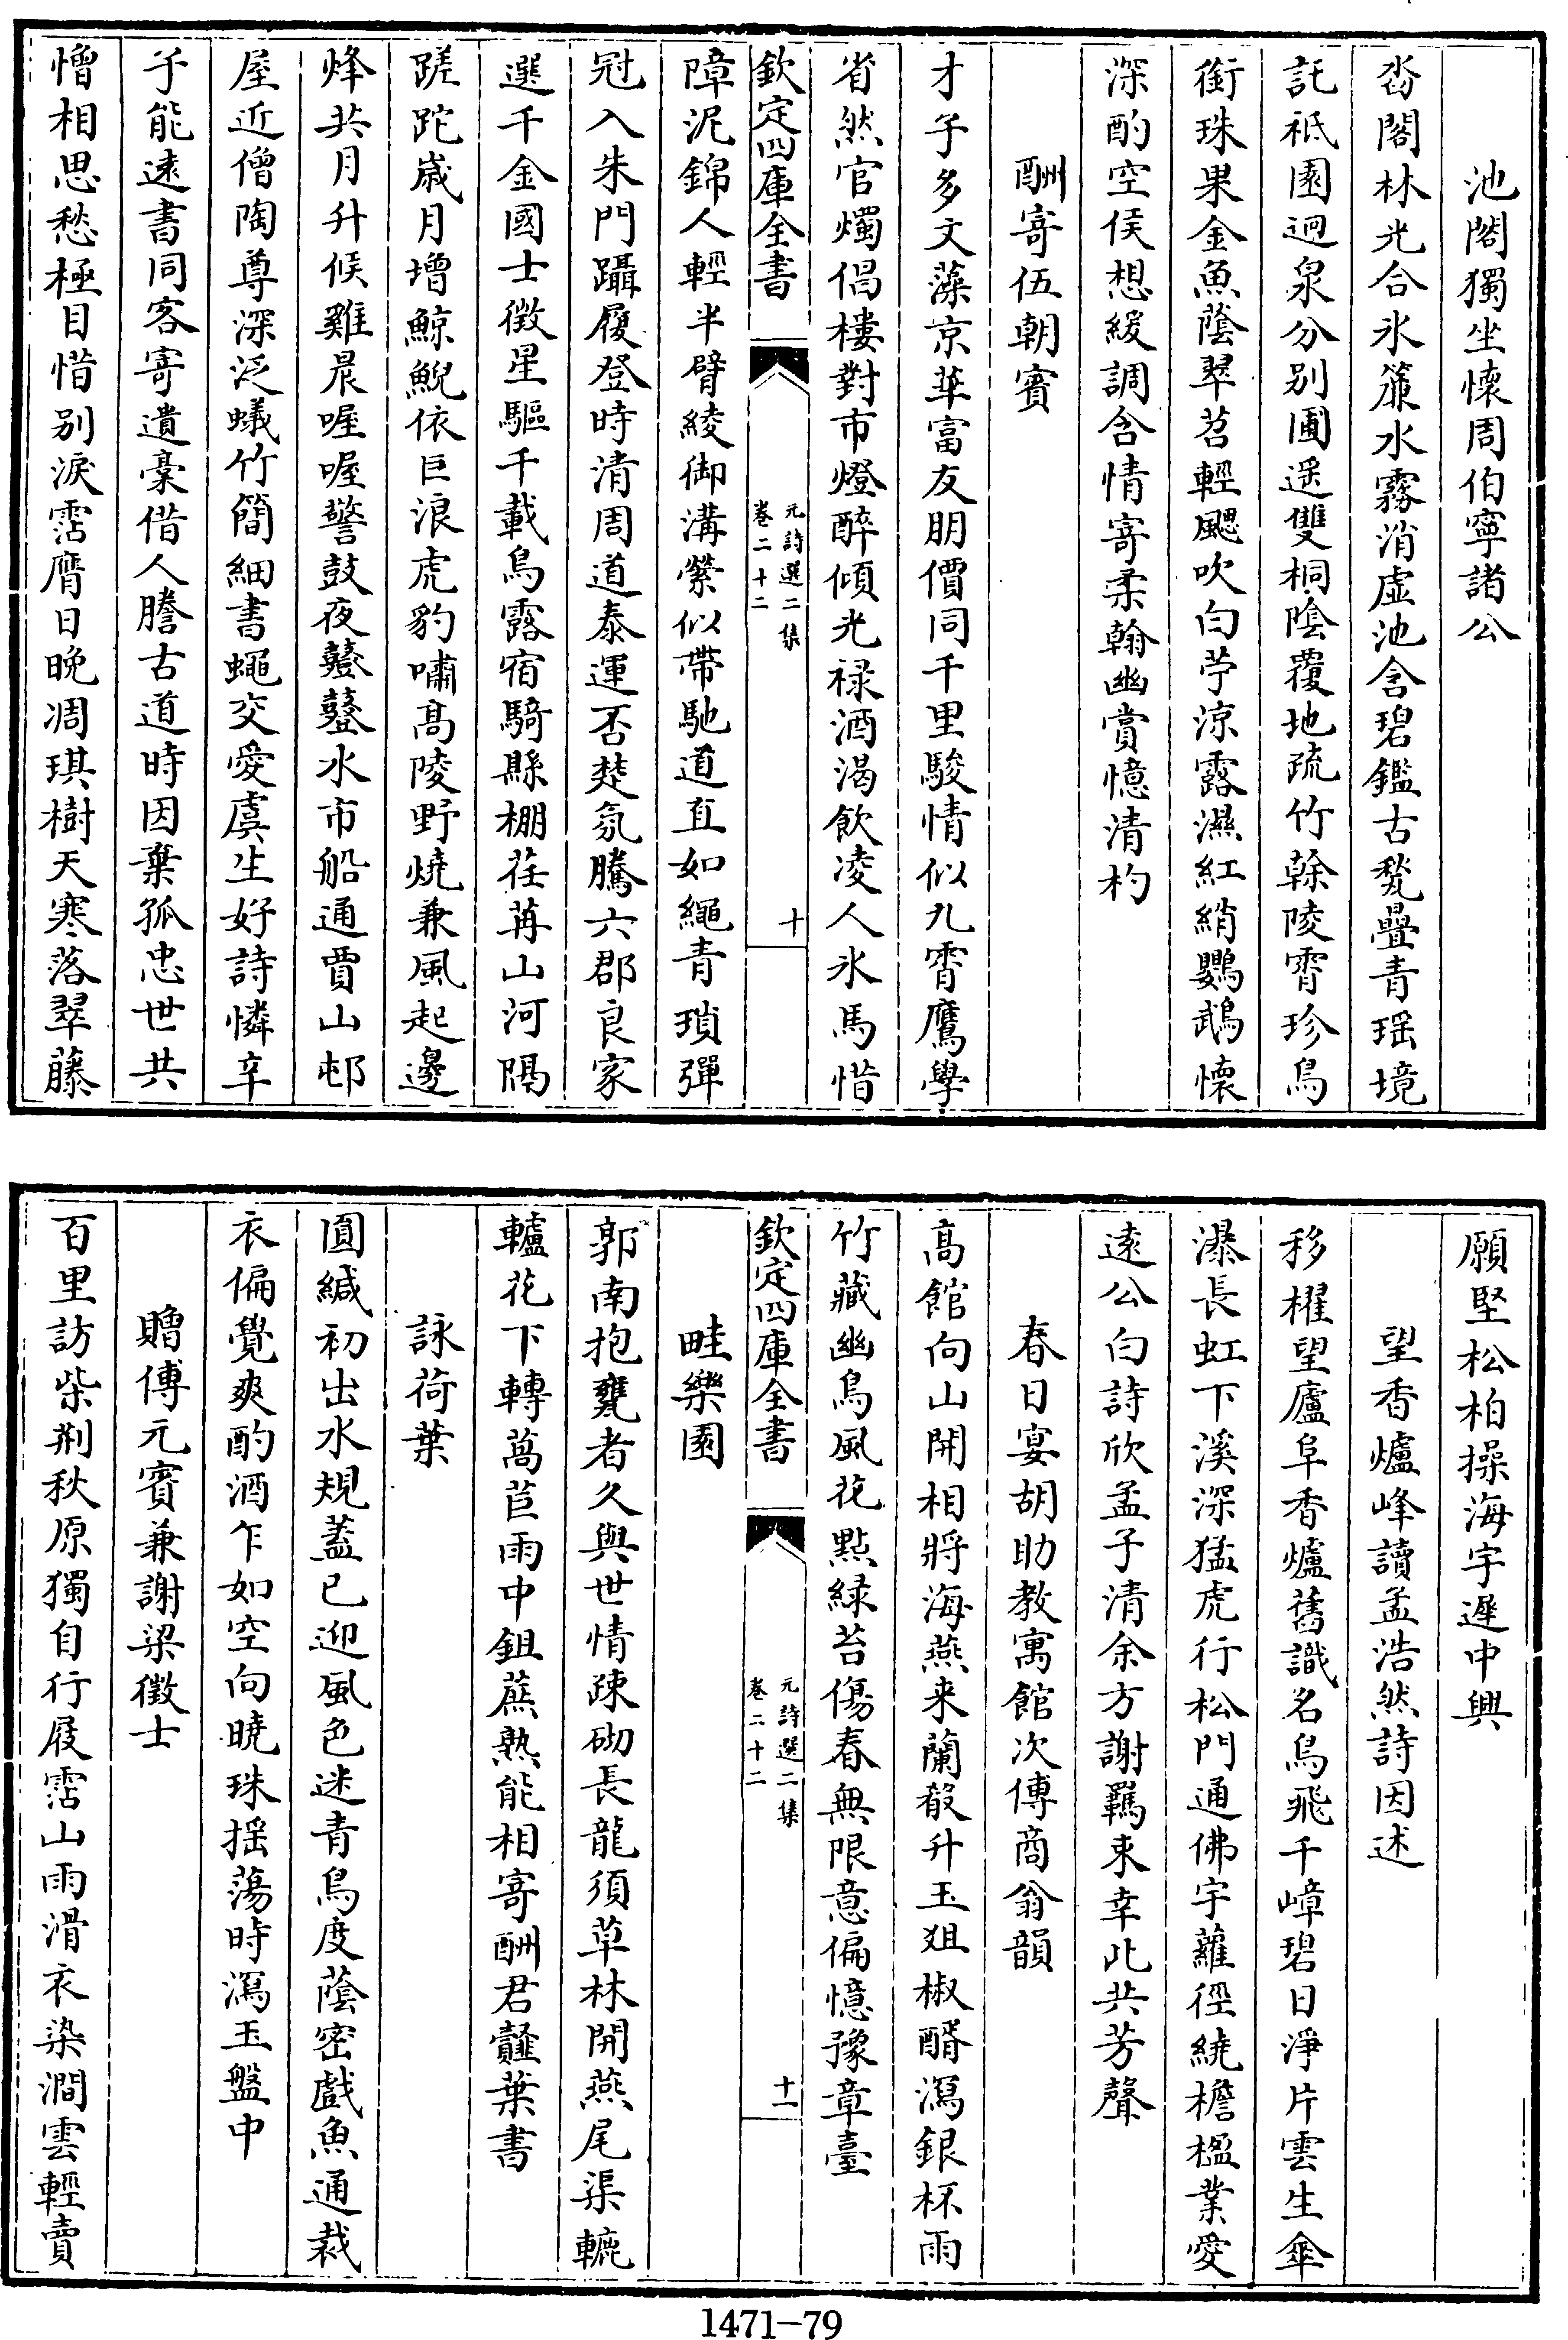 池閣獨坐懷周伯寧諸公
沓閣林光合氷簾水霧消虛池含碧鑑古甃疊青瑶境
託祗園迥泉分别圃遥雙桐陰覆地疏竹榦陵霄珍鳥
銜珠果金魚蔭翠苕輕颸吹白苧涼露濕紅綃鸚鵡懐
深酌空侯想緩調含情寄柔翰幽賞憶清杓
酬寄伍朝賓
才子多文藻京華富友朋價同千里駿情似九霄鷹學
省然官燭倡樓對市燈醉傾光禄酒渴飲凌人氷馬惜
欽定四庫全書
元詩選二集
卷二十二
十
障泥錦人輕半臂綾御溝縈似帶馳道直如繩青瑣彈
冠入朱門躡履登時清周道泰運否楚氛騰六郡良家
選千金國士徴星驅千載鳥露宿騎縣棚荏苒山河隔
蹉跎歳月增鯨鯢依巨浪虎豹嘯髙陵野燒兼風起邊
烽共月升候雞晨喔喔警鼓夜鼞鼞水市船通賈山邨
屋近僧陶尊深泛蟻竹簡細書蠅交愛虞生好詩憐辛
子能逺書同客寄遺稾借人謄古道時因棄孤忠世共
憎相思愁極目惜别淚霑膺日晩凋琪樹天寒落翠藤
願堅松柏操海宇遲中興
望香爐峰讀孟浩然詩因述
移櫂望廬阜香爐舊識名鳥飛千嶂碧日淨片雲生傘
瀑長虹下溪深猛虎行松門通佛宇蘿徑繞檐楹業愛
逺公白詩欣孟子清余方謝羈束幸此共芳聲
春日宴胡助教寓館次傅商翁韻
髙館向山開相將海燕来蘭殽升玉俎椒醑瀉銀杯雨
竹藏幽鳥風花點緑苔傷春無限意偏憶豫章臺
欽定四庫全書
元詩選二集
卷二十二
十一
畦樂園
郭南抱甕者久與世情疎砌長龍須草林開燕尾渠轆
轤花下轉萵苣雨中鉏蔗熟能相寄酬君虀葉書
詠荷葉
圓緘初出水規蓋已迎風色迷青鳥度蔭密戲魚通裁
衣偏覺爽酌酒乍如空向曉珠揺蕩時瀉玉盤中
贈傅元賓兼謝梁徴士
百里訪柴荆秋原獨自行屐霑山雨滑衣染澗雲輕賣
1471-79